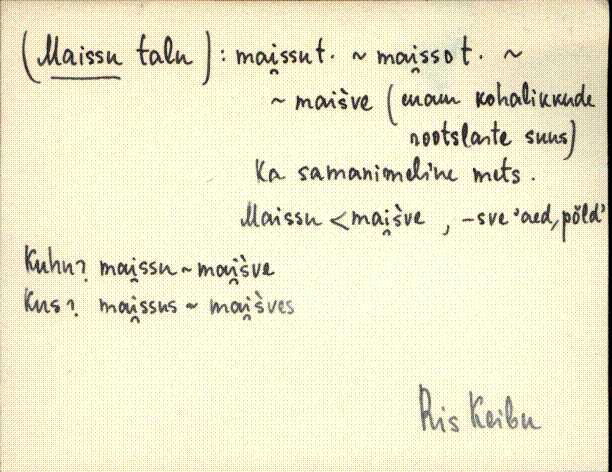 (Maissu talu): mai̯ssut. ~ mai̯ssot. ~
~ maiš̀ve (enam kohalikkude
rootslaste suus)
Ka samanimeline mets.
Maissu < mai̯š̀ve, -sve 'aed, põld'
Kuhu? mai̯ssu ~ mai̯š̀ve
Kus? mai̯ssus ~ mai̯š̀ves
Ris Keibu